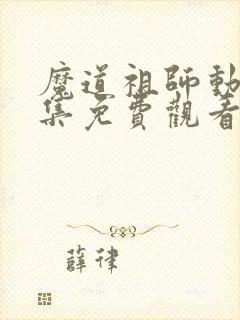 魔道祖師動
集免費觀看
薛律